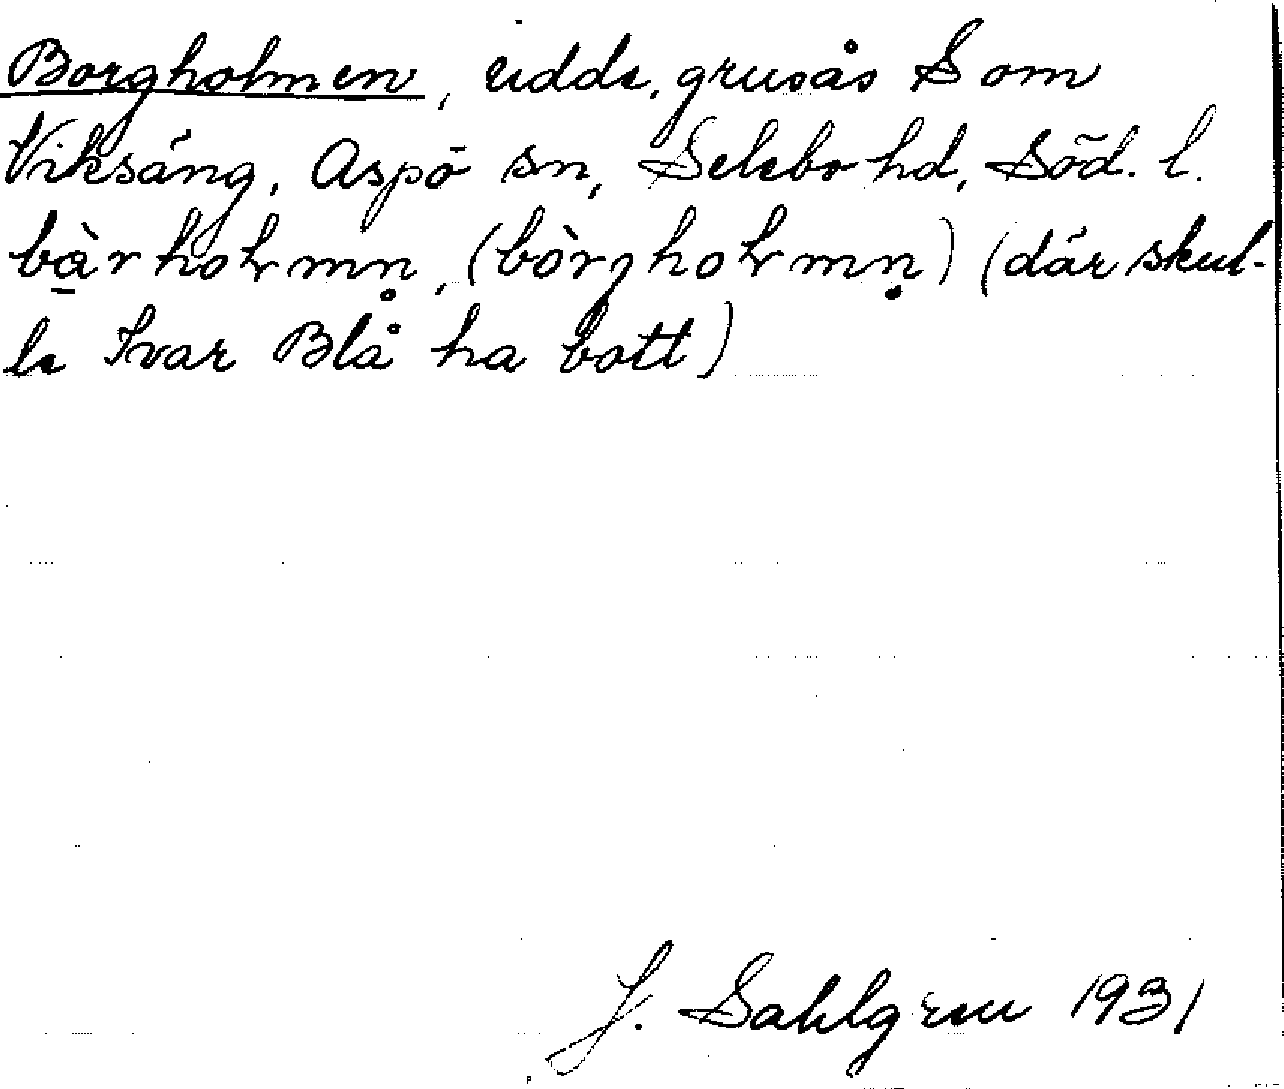 Borgholmen, udde, grusås S om
Viksäng, Aspö sn, Selebo hd, Söd. l.
bà̱rholmn̥, (bòrgholmn̥) (där skul-
le Ivar Blå ha bott)
J. Sahlgren 1931